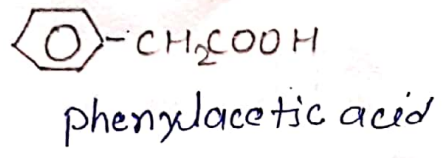 -CH₂COOH
phenylacetic acid